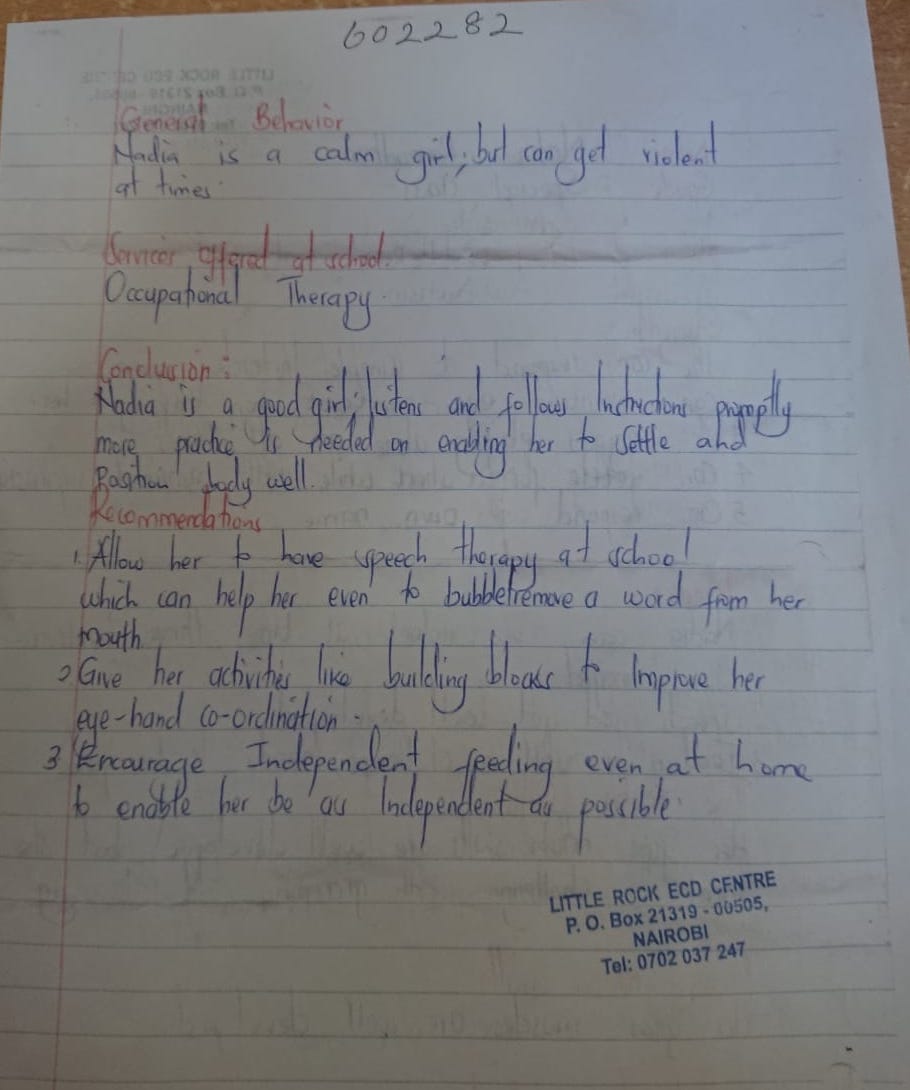 602282
General Behavior
Nadia is a calm girl, but can get violent
at times.
Services offered at school.
Occupational Therapy.
Conclusion:
Nadia is a good girl, listens and follows Instructions promptly
more practice is needed on enabling her to settle and
Position body well.
Recommendations
1. Allow her to have speech therapy at school
which can help her even to bubble/remove a word from her
mouth
2 Give her activities like building blocks to Improve her
eye-hand co-ordination.
3 Encourage Independent feeding even at home
to enable her be as Independent as possible.
LITTLE ROCK ECD CENTRE
P. O. Box 21319 - 00505,
NAIROBI
Tel: 0702 037 247